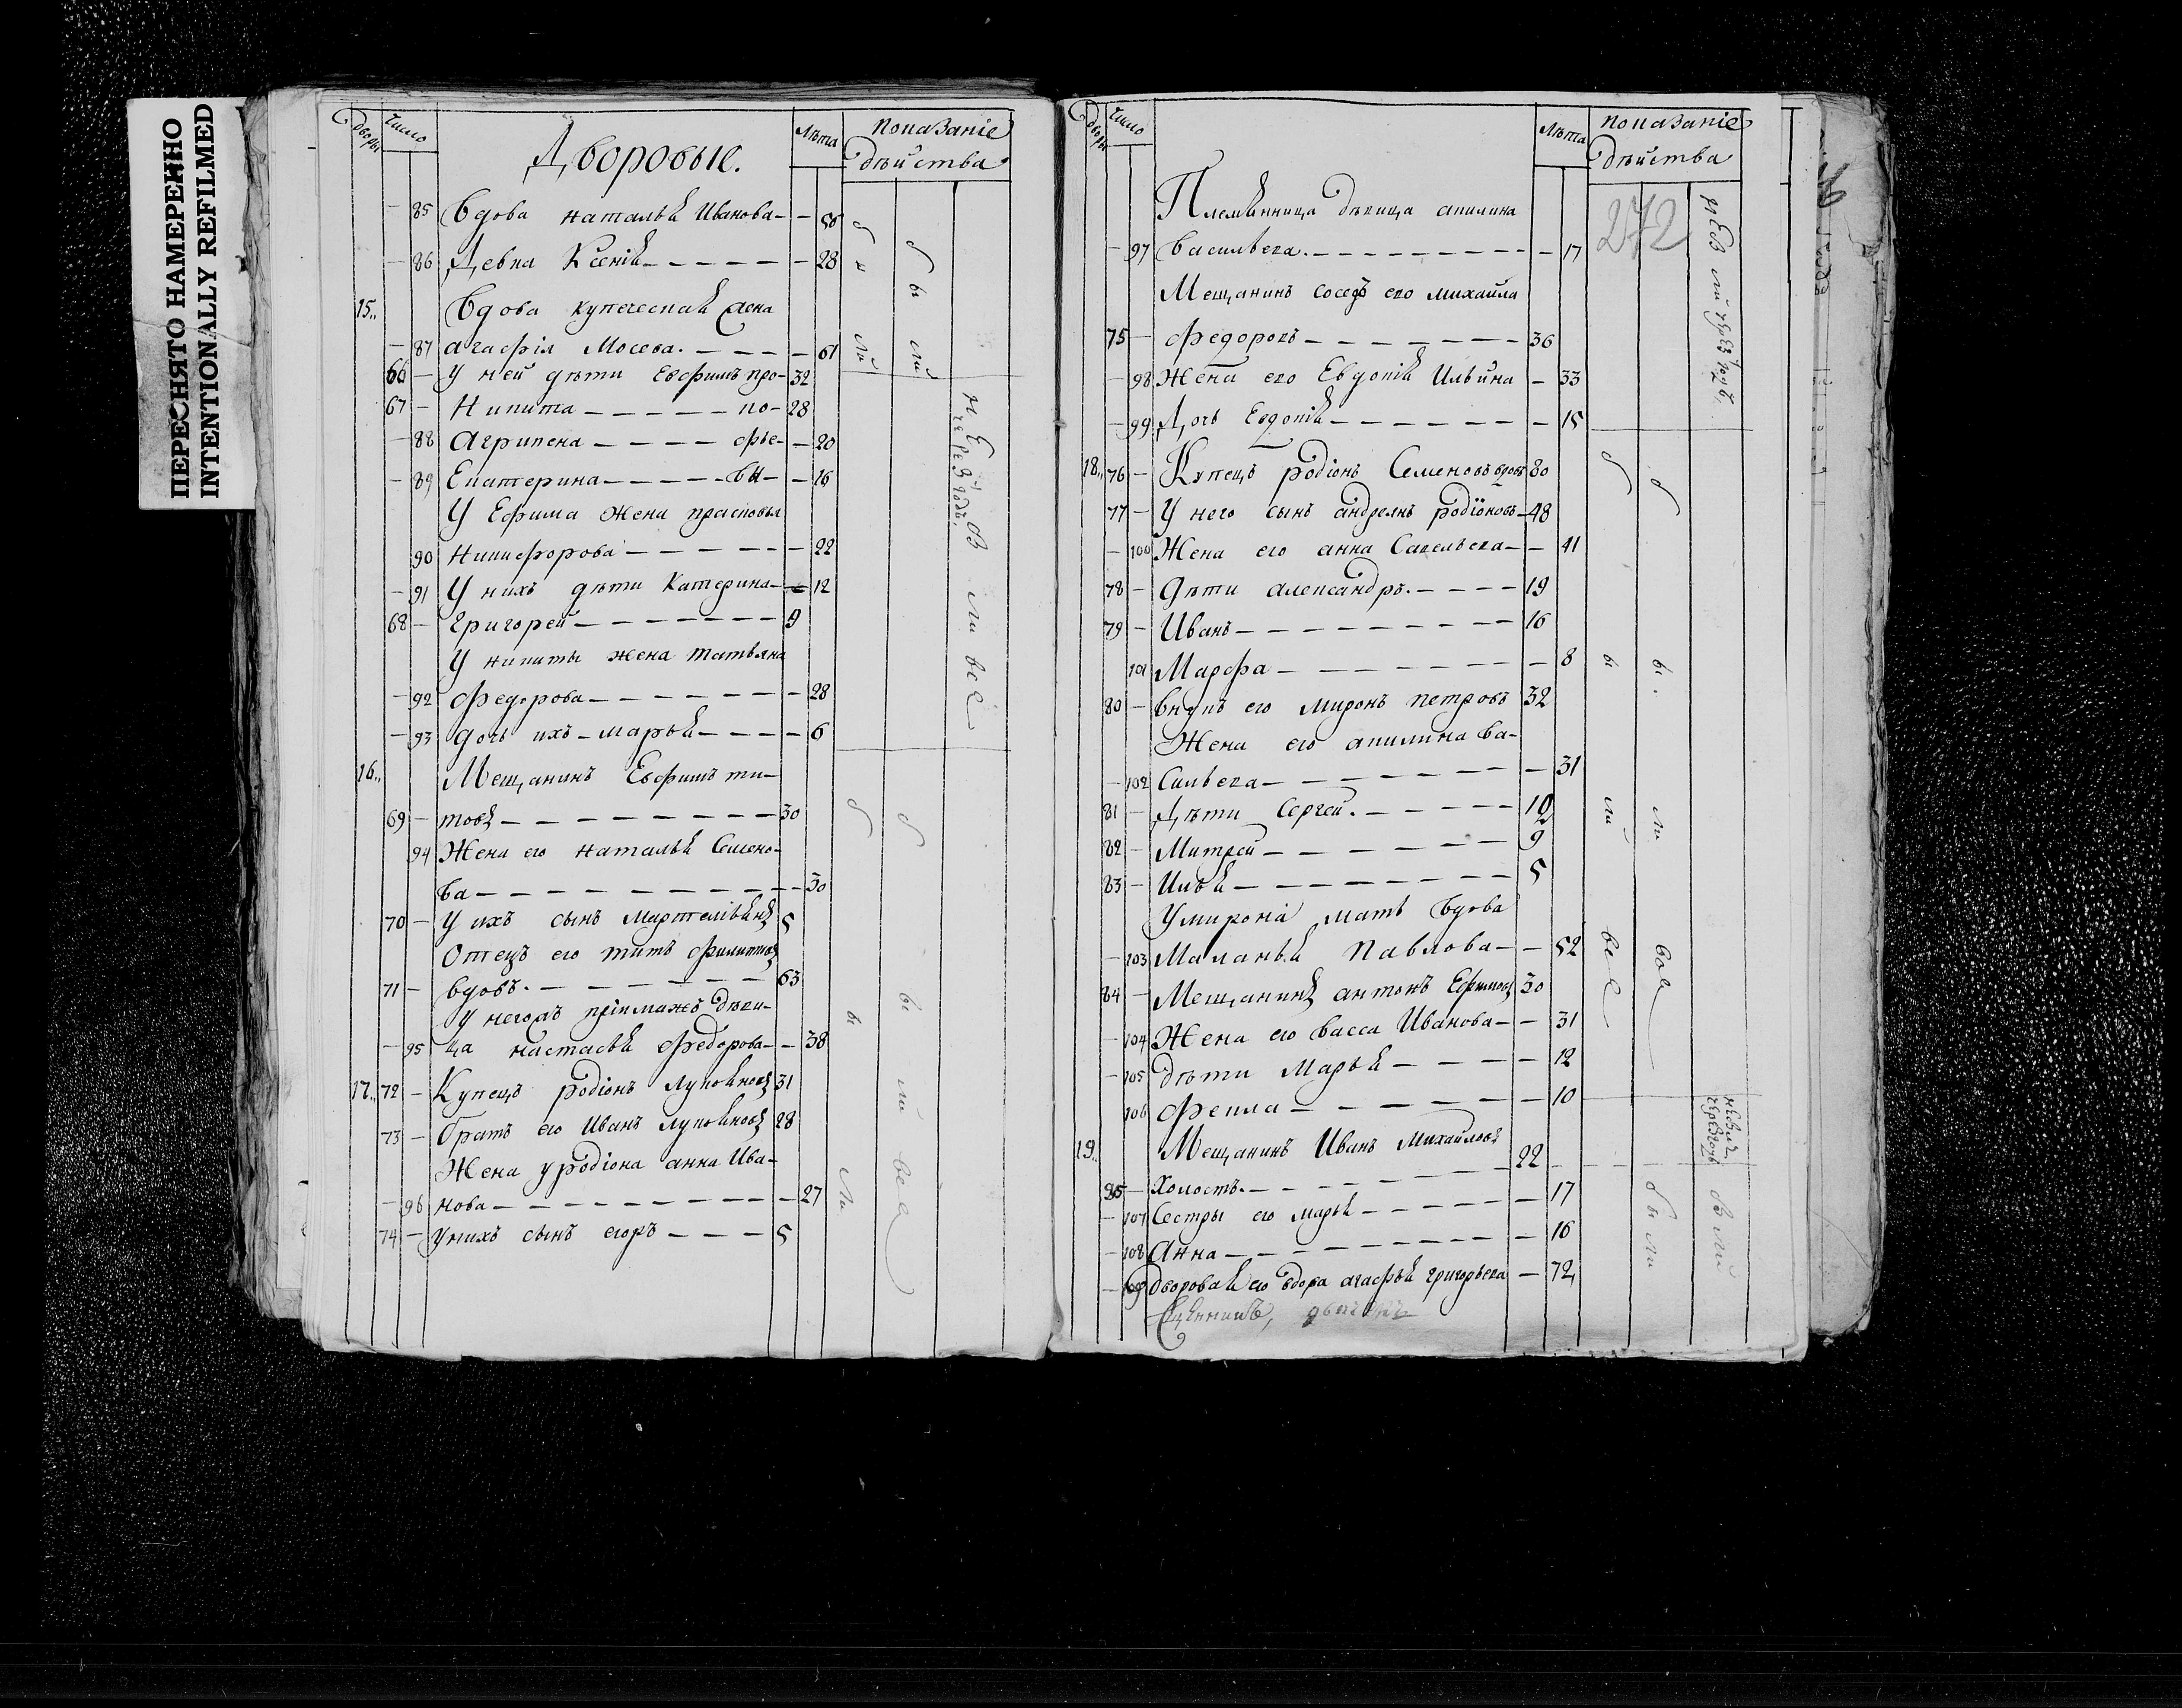 ПЕРЕСНЯТО НАМЕРЕННО
INTENTIONALLY REFILMED
дворы число Дворовые. лѣта показаніе дѣйства
85 вдова наталья Иванова 58
86 Девка Ксенія 28
15. Вдова купеческая жена
87 агафія Мосева. 61
66 У ней дѣти Евфимъ про- 32
67 Никита по- 28
88 агрипена фье- 20
89 Екатерина вы- 16
У Ефима жена прасковья
90 Никифорова 22
91 У нихъ дѣти Катерина 12
68 григорей 9
У никиты жена татьяна
92 Федорова 28
93 дочь ихъ марья 6
16. Мещанинъ Евфимъ ти-
69 товъ 30
94 Жена его наталья Семено-
ва 30
70 У ихъ сынъ 5
Отецъ его титъ
71 вдовъ. 63
дѣви-
95 ца настасья Федорова 38
17. 72 Купецъ родіонъ 31
73 братъ его Иванъ 28
Жена у родіона анна Ива-
96 нова 27
74 У нихъ сынъ егоръ 5
дворы число лѣта показаніе дѣйства
272
Племянница дѣвица акилина
97 васильева. 17
Мещанинъ соседъ его михайла
75 Федоровъ 36
98 Жена его Евдокія Ильина 33
99 Дочь Евдокія 15
18. 76 Купецъ родіонъ Семеновъ вдовъ 80
77 У него сынъ андреянъ родіоновъ 48
100 Жена его анна Савельева 41
78 дѣти александръ. 19
79 Иванъ 16
101 Марфа 8
80 внукъ его миронъ петровъ 32
Жена его акилина ва-
102 сильева 31
81 Дѣти Сергей. 10
82 Митрей 9
83 Илья 5
У мирона мать вдова
103 Маланья Павлова 52
84 Мещанинъ антонъ Ефимовъ 30
104 Жена его васса Иванова 31
105 дѣти Марья 12
106 Фекла 10
19. Мещанинъ Иванъ Михайловъ
85 Холостъ. 22
107 Сестры его марья 17
108 Анна 16
109 дворовая его вдова агафья григорьева 72